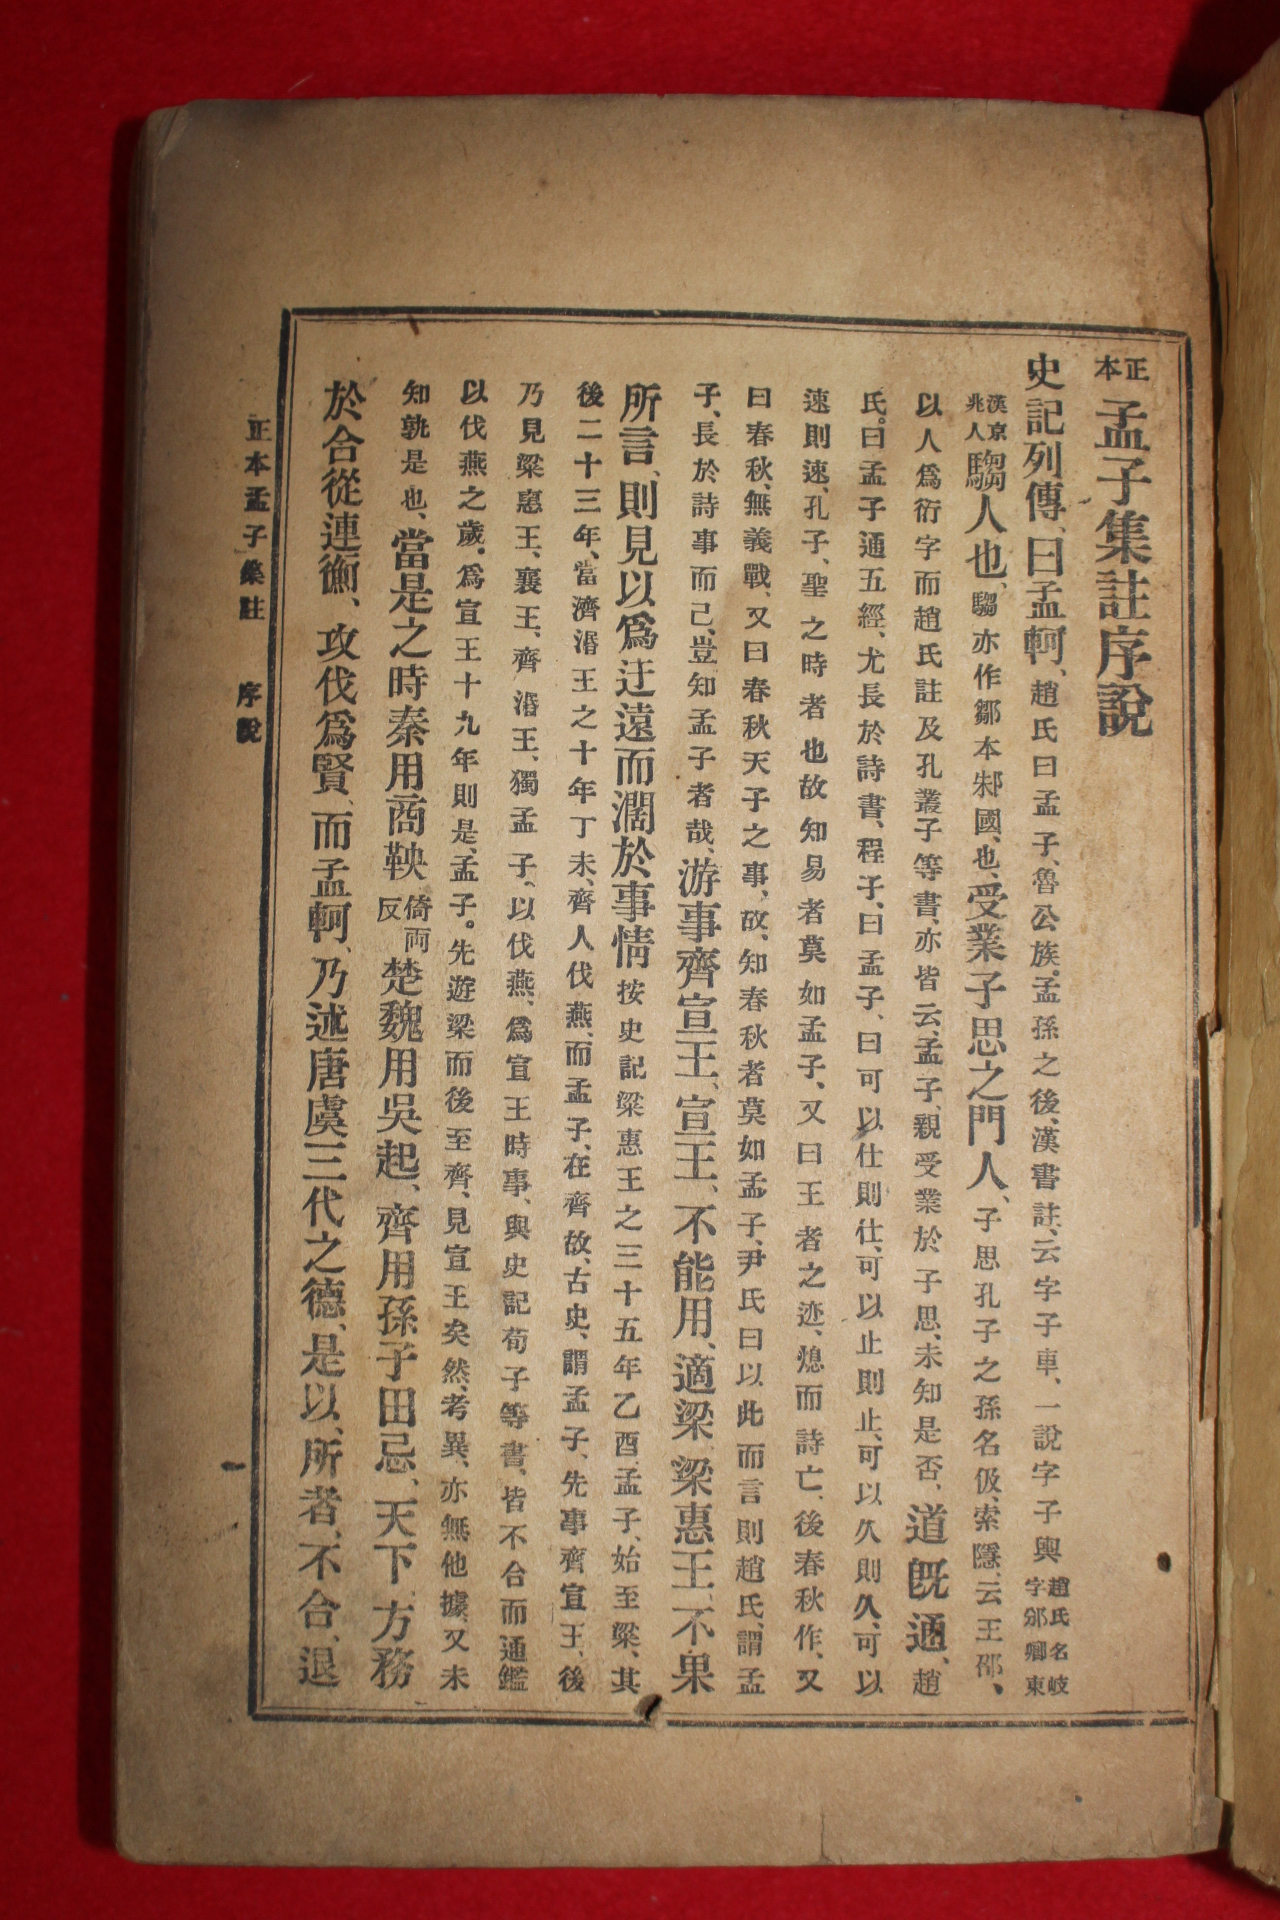 正本 孟子集註序說
史記列傳、曰孟軻、趙氏曰孟子、魯公族、孟孫之後、漢書註、云字子車、一說字子輿 趙氏名岐字邠卿東
漢京兆人 騶人也、騶亦作鄒本邾國、也、受業子思之門人、子思孔子之孫名伋、索隱、云王邵、
以人爲衍字而趙氏註及孔叢子等書、亦皆云、孟子、親受業於子思、未知是否、道旣通、趙
氏。曰孟子通五經、尤長於詩書、程子、曰孟子、曰可以仕則仕、可以止則止、可以久則久、可以
速則速、孔子、聖之時者也故知易者莫如孟子、又曰王者之迹、熄而詩亡、後春秋作、又
曰春秋、無義戰、又曰春秋天子之事、故、知春秋者莫如孟子、尹氏曰以此而言則趙氏、謂孟
子、長於詩事而己、豈知孟子者哉、游事齊宣王、宣王、不能用、適梁、梁惠王、不果
所言、則見以爲迂遠而濶於事情 按史記梁惠王之三十五年乙酉、孟子、始至梁、其
後二十三年、當濟湣王之十年丁未、齊人伐燕、而孟子、在齊故、古史、謂孟子、先事齊宣王、後
乃見梁惠王、襄王、齊湣王、獨孟子、以伐燕、爲宣王時事、與史記荀子等書、皆不合而通鑑
以伐燕之歲、爲宣王十九年則是、孟子。先遊梁而後至齊、見宣王矣然、考異、亦無他據、又未
知孰是也、當是之時秦用商鞅 倚兩反 楚魏用吳起、齊用孫子田忌、天下、方務
於合從連衡、攻伐爲賢、而孟軻、乃述唐虞三代之德、是以、所者、不合、退
正本孟子集註 序說